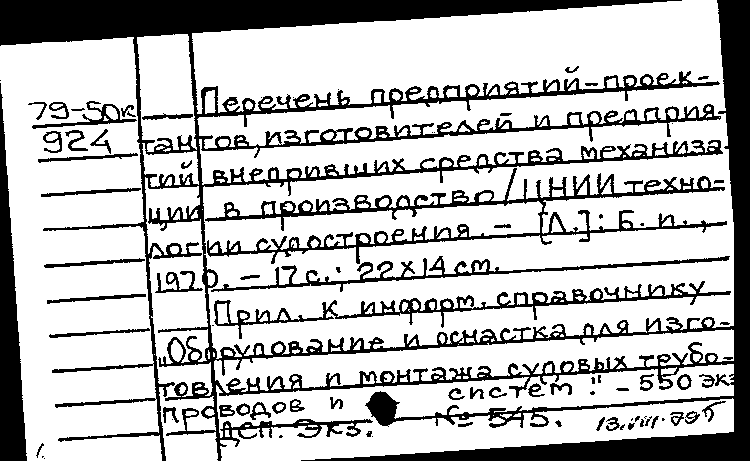 79-50к
924
Перечень предприятий-проек-
тантов, изготовителей и предприя-
тий внедривших средства механиза-
ции в производство / ЦНИИ техно-
логии судостроения. – [Л.]: Б. и.,
1970. – 17 с.; 22х14 см.
Прил. к информ. справочнику
„Оборудование и оснастка для изго-
товления и монтажа судовых трубо-
проводов и систем". – 550 экз
Деп. Экз. № 545. 13.VIII.79